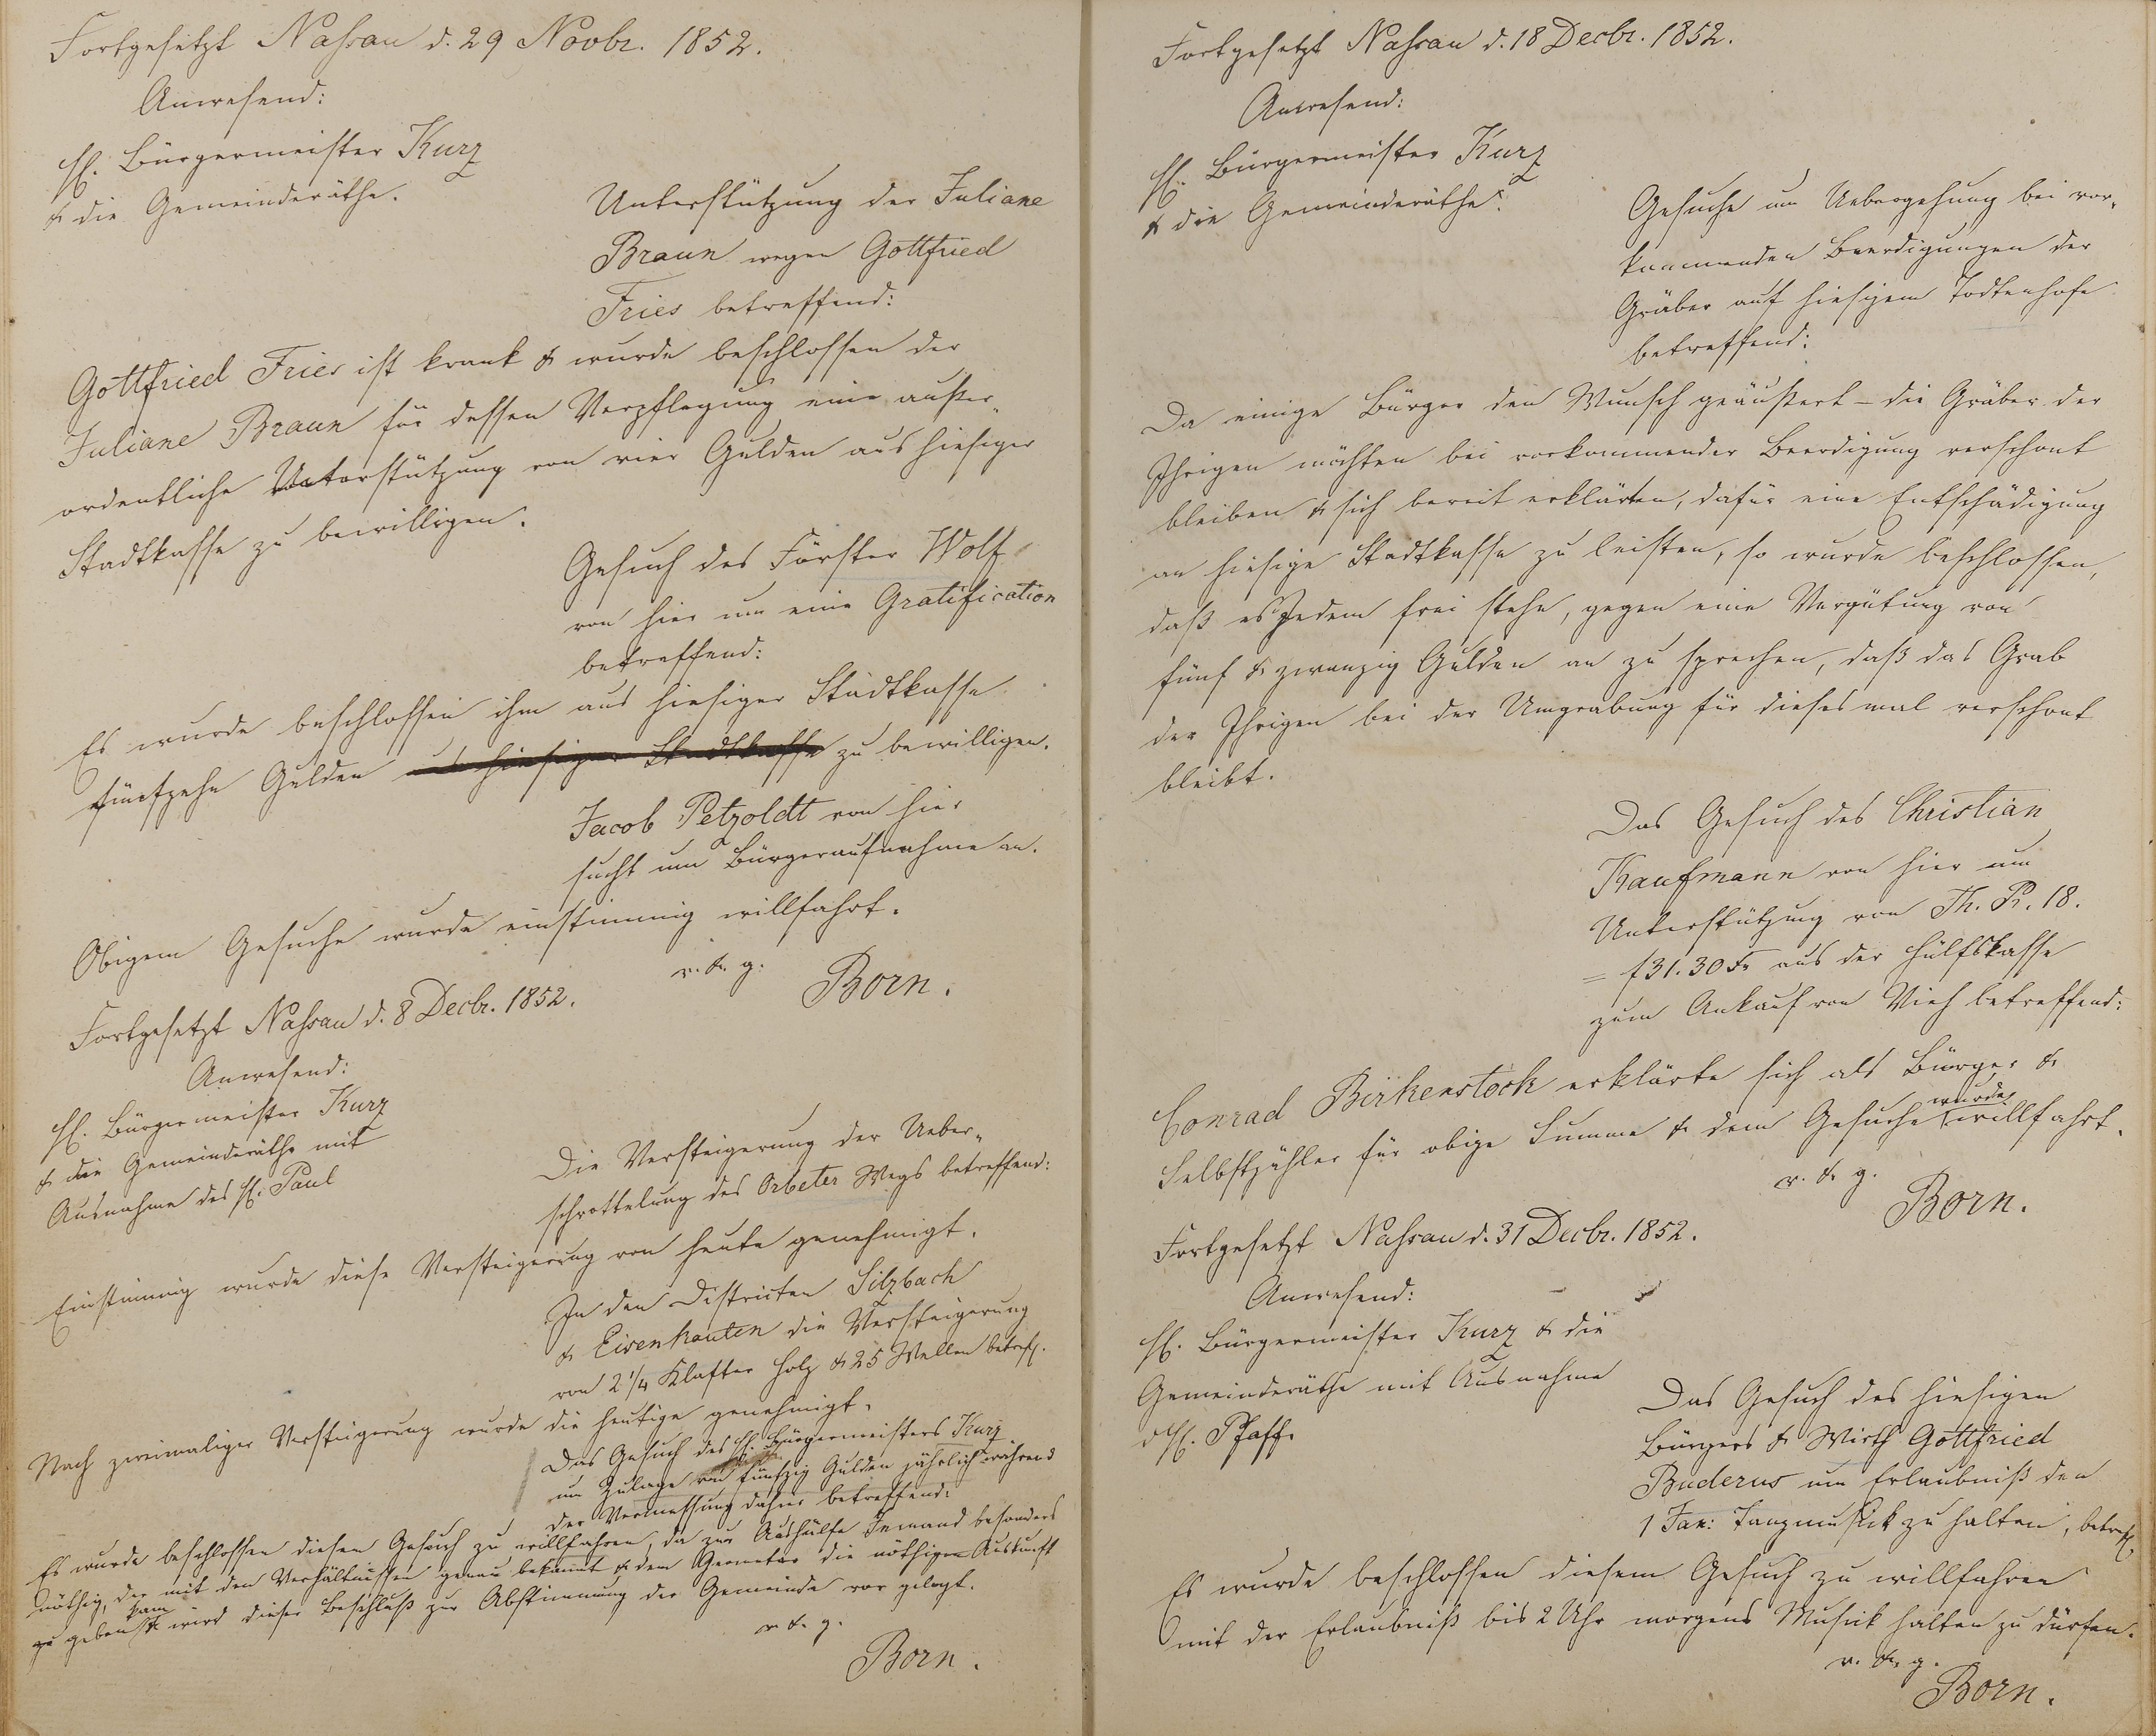 Fortgesetzt Nassau d. 29 Novbr. 1852.
Anwesend:
H. Bürgermeister Kurz
& die Gemeinderäthe.
Unterstützung der Juliane
Braun wegen Gottfried
Fries betreffend:
Gottfried Fries ist krank & wurde beschlossen der
Juliane Braun für dessen Verpflegung eine außer„
ordentliche Unterstützung von vier Gulden aus hiesiger
Stadtkasse zu bewilligen.
Gesuch des Förster Wolf
von hier um eine Gratification
betreffend:
Es wurde beschlossen ihm aus hiesiger Stadtkasse
fünfzehn Gulden aus hiesiger Stadtkasse zu bewilligen.
Jacob Petzoldt von hier
sucht um Bürgeraufnahme an.
Obigem Gesuche wurde einstimmig willfahrt.
v. & g.
Born.
Fortgesetzt Nassau d. 8 Decbr. 1852.
Anwesend:
H. Bürgermeister Kurz
& die Gemeinderäthe mit
Ausnahme des H. Paul
Die Versteigerung der Ueber„
schrottelung des Orbeter Wegs betreffend:
Einstimmig wurde diese Versteigerung von heute genehmigt.
In den Districten Silzbach
& Eisenkauten die Versteigerung
von 2 1/4 Klafter Holz & 25 Wellen betreff.
Nach zweimaliger Versteigerung wurde die heutige genehmigt.
Das Gesuch des H. Bürgermeisters Kurz
um Zulage von fünfzig Gulden jährlich während
der Vermessung dahier betreffend:
Es wurde beschlossen diesen Gesuch zu willfahren, da zur Aushülfe Jemand besonders
nöthig, der mit den Verhältnissen genau bekannt & dem Geometer die nöthigen Auskunft
zu geben kann & wird dieser Beschluß zur Abstimmung der Gemeinde vor gelegt.
v. & g.
Born.
Fortgesetzt Nassau d. 18 Decbr. 1852.
Anwesend:
H. Bürgermeister Kurz
& die Gemeinderäthe.
Gesuche um Uebergehung bei vor„
kommenden Beerdigungen der
Gräber auf hiesigem Todtenhofe
betreffend:
Da einige Bürger den Wunsch geäußert – die Gräber der
Ihrigen möchten bei vorkommender Beerdigung verschont
bleiben & sich bereit erklärten, dafür eine Entschädigung
an hiesige Stadtkasse zu leisten, so wurde beschlossen,
daß es Jedem frei stehe, gegen eine Vergütung von
fünf & zwanzig Gulden an zu sprechen, daß das Grab
der Ihrigen bei der Umgrabung für dieses mal verschont
bleibt.
Das Gesuch des Christian
Kaufmann von hier um
Unterstützung von Th. Pr. 18.
= f 31. 30 Kr aus der Hülfskasse
zum Ankauf von Vieh betreffend:
Conrad Birkenstock erklärte sich als Bürger &
Selbstzähler für obige Summe & dem Gesuche wurde willfahrt.
v. & g.
Born.
Fortgesetzt Nassau d. 31 Decbr. 1852.
Anwesend:
H. Bürgermeister Kurz & die
Gemeinderäthe mit Ausnahme
d H. Pfaff.
Das Gesuch des hiesigen
Bürgers & Wirth Gottfried
Buderus um Erlaubniß den
1 Jan: Tanzmusick zu halten, betreff.
Es wurde beschlossen diesem Gesuch zu willfahren
mit der Erlaubniß bis 2 Uhr morgens Musick halten zu dürfen.
v. & g.
Born.